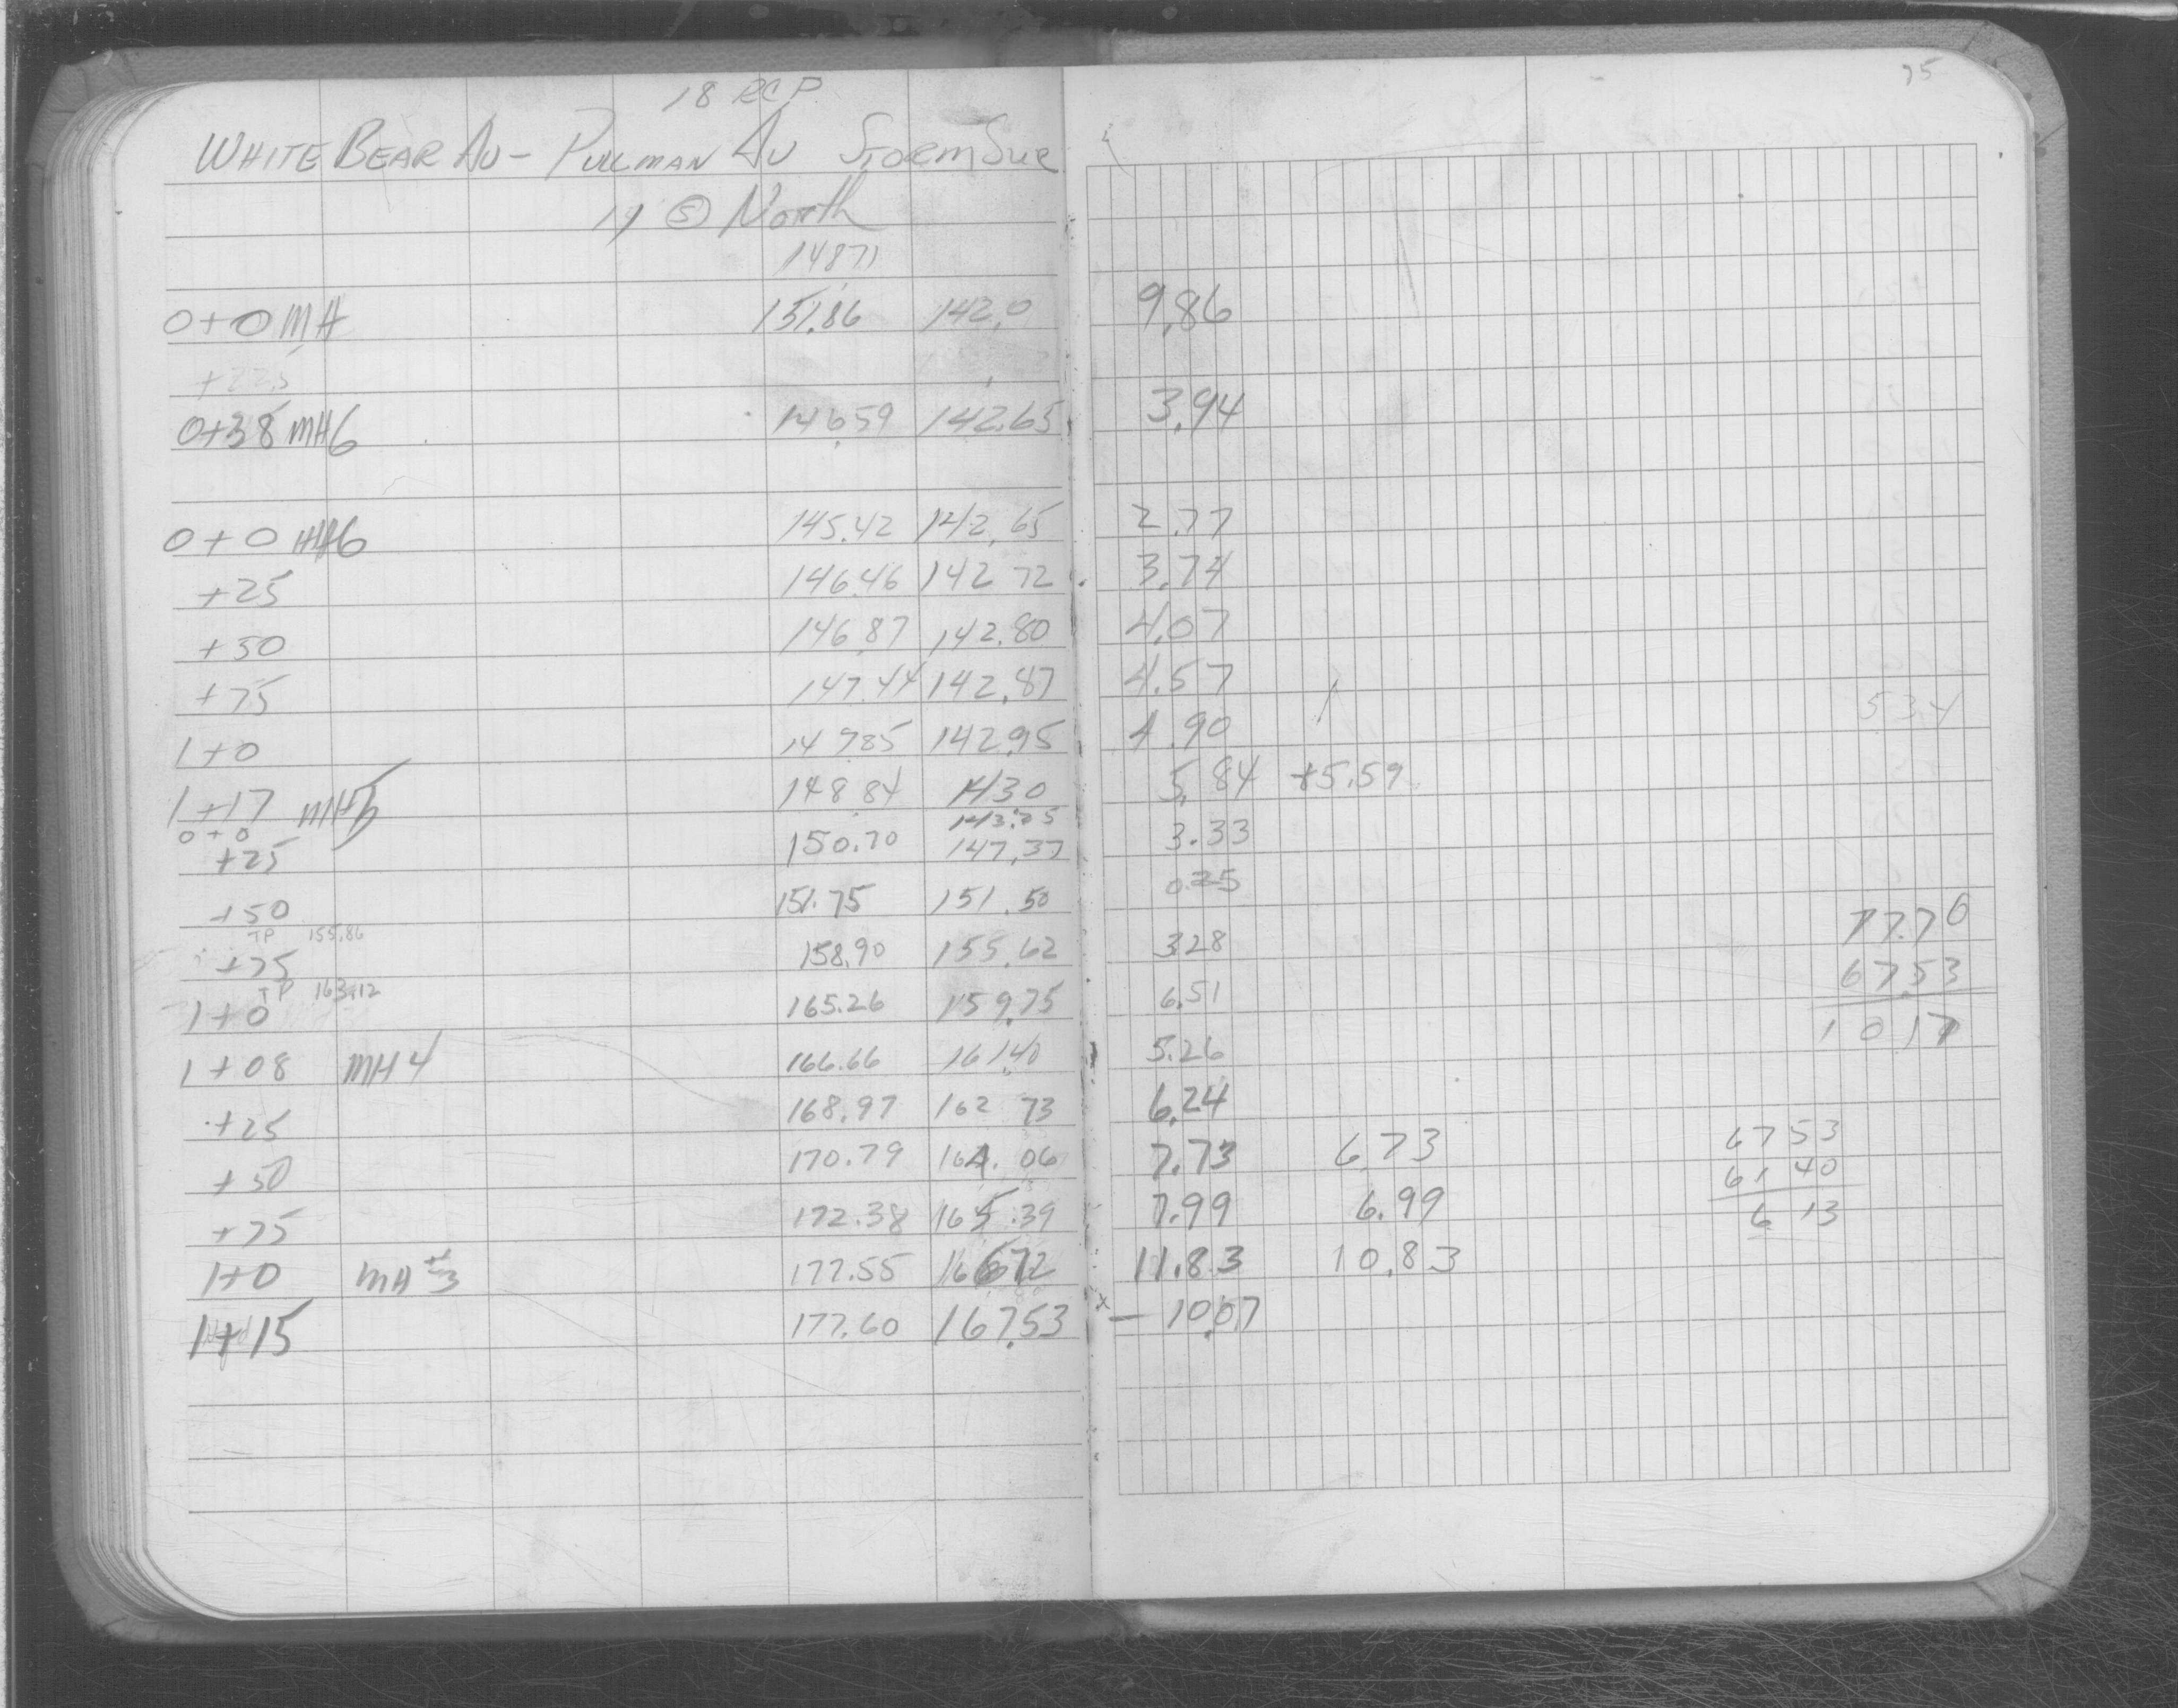 75
18 RCP
WHITE BEAR AV - PULLMAN AV STORM SUR
19 (S) North
148.71
0+0 MH 151.86 142.0 9.86
+22.5
0+38 MH6 146.59 142.65 3.94
0+0 MH6 145.42 142.65 2.77
+25 146.46 142 72 3.74
+50 146.87 142.80 4.07
+75 147.44 142.87 4.57 53.4
1+0 147.85 142.95 4.90
1+17 MH5 148.84 143.0 5.84 +5.59
0+0 143.25
+25 150.70 147.37 3.33
+50 151.75 151.50 0.25
TP 155.86 77.70
+75 158.90 155.62 3.28 67.53
TP 163.12
1+0 165.26 159.75 6.51 10 17
1+08 MH4 166.66 161.40 5.26
+25 168.97 162 73 6.24
+50 170.79 164.06 7.73 6.73 67 53
61 40
+75 172.38 165.39 7.99 6.99 6 13
1+0 MH #3 177.55 166.72 11.83 10.83
1+15 177.60 167.53 x - 10.07